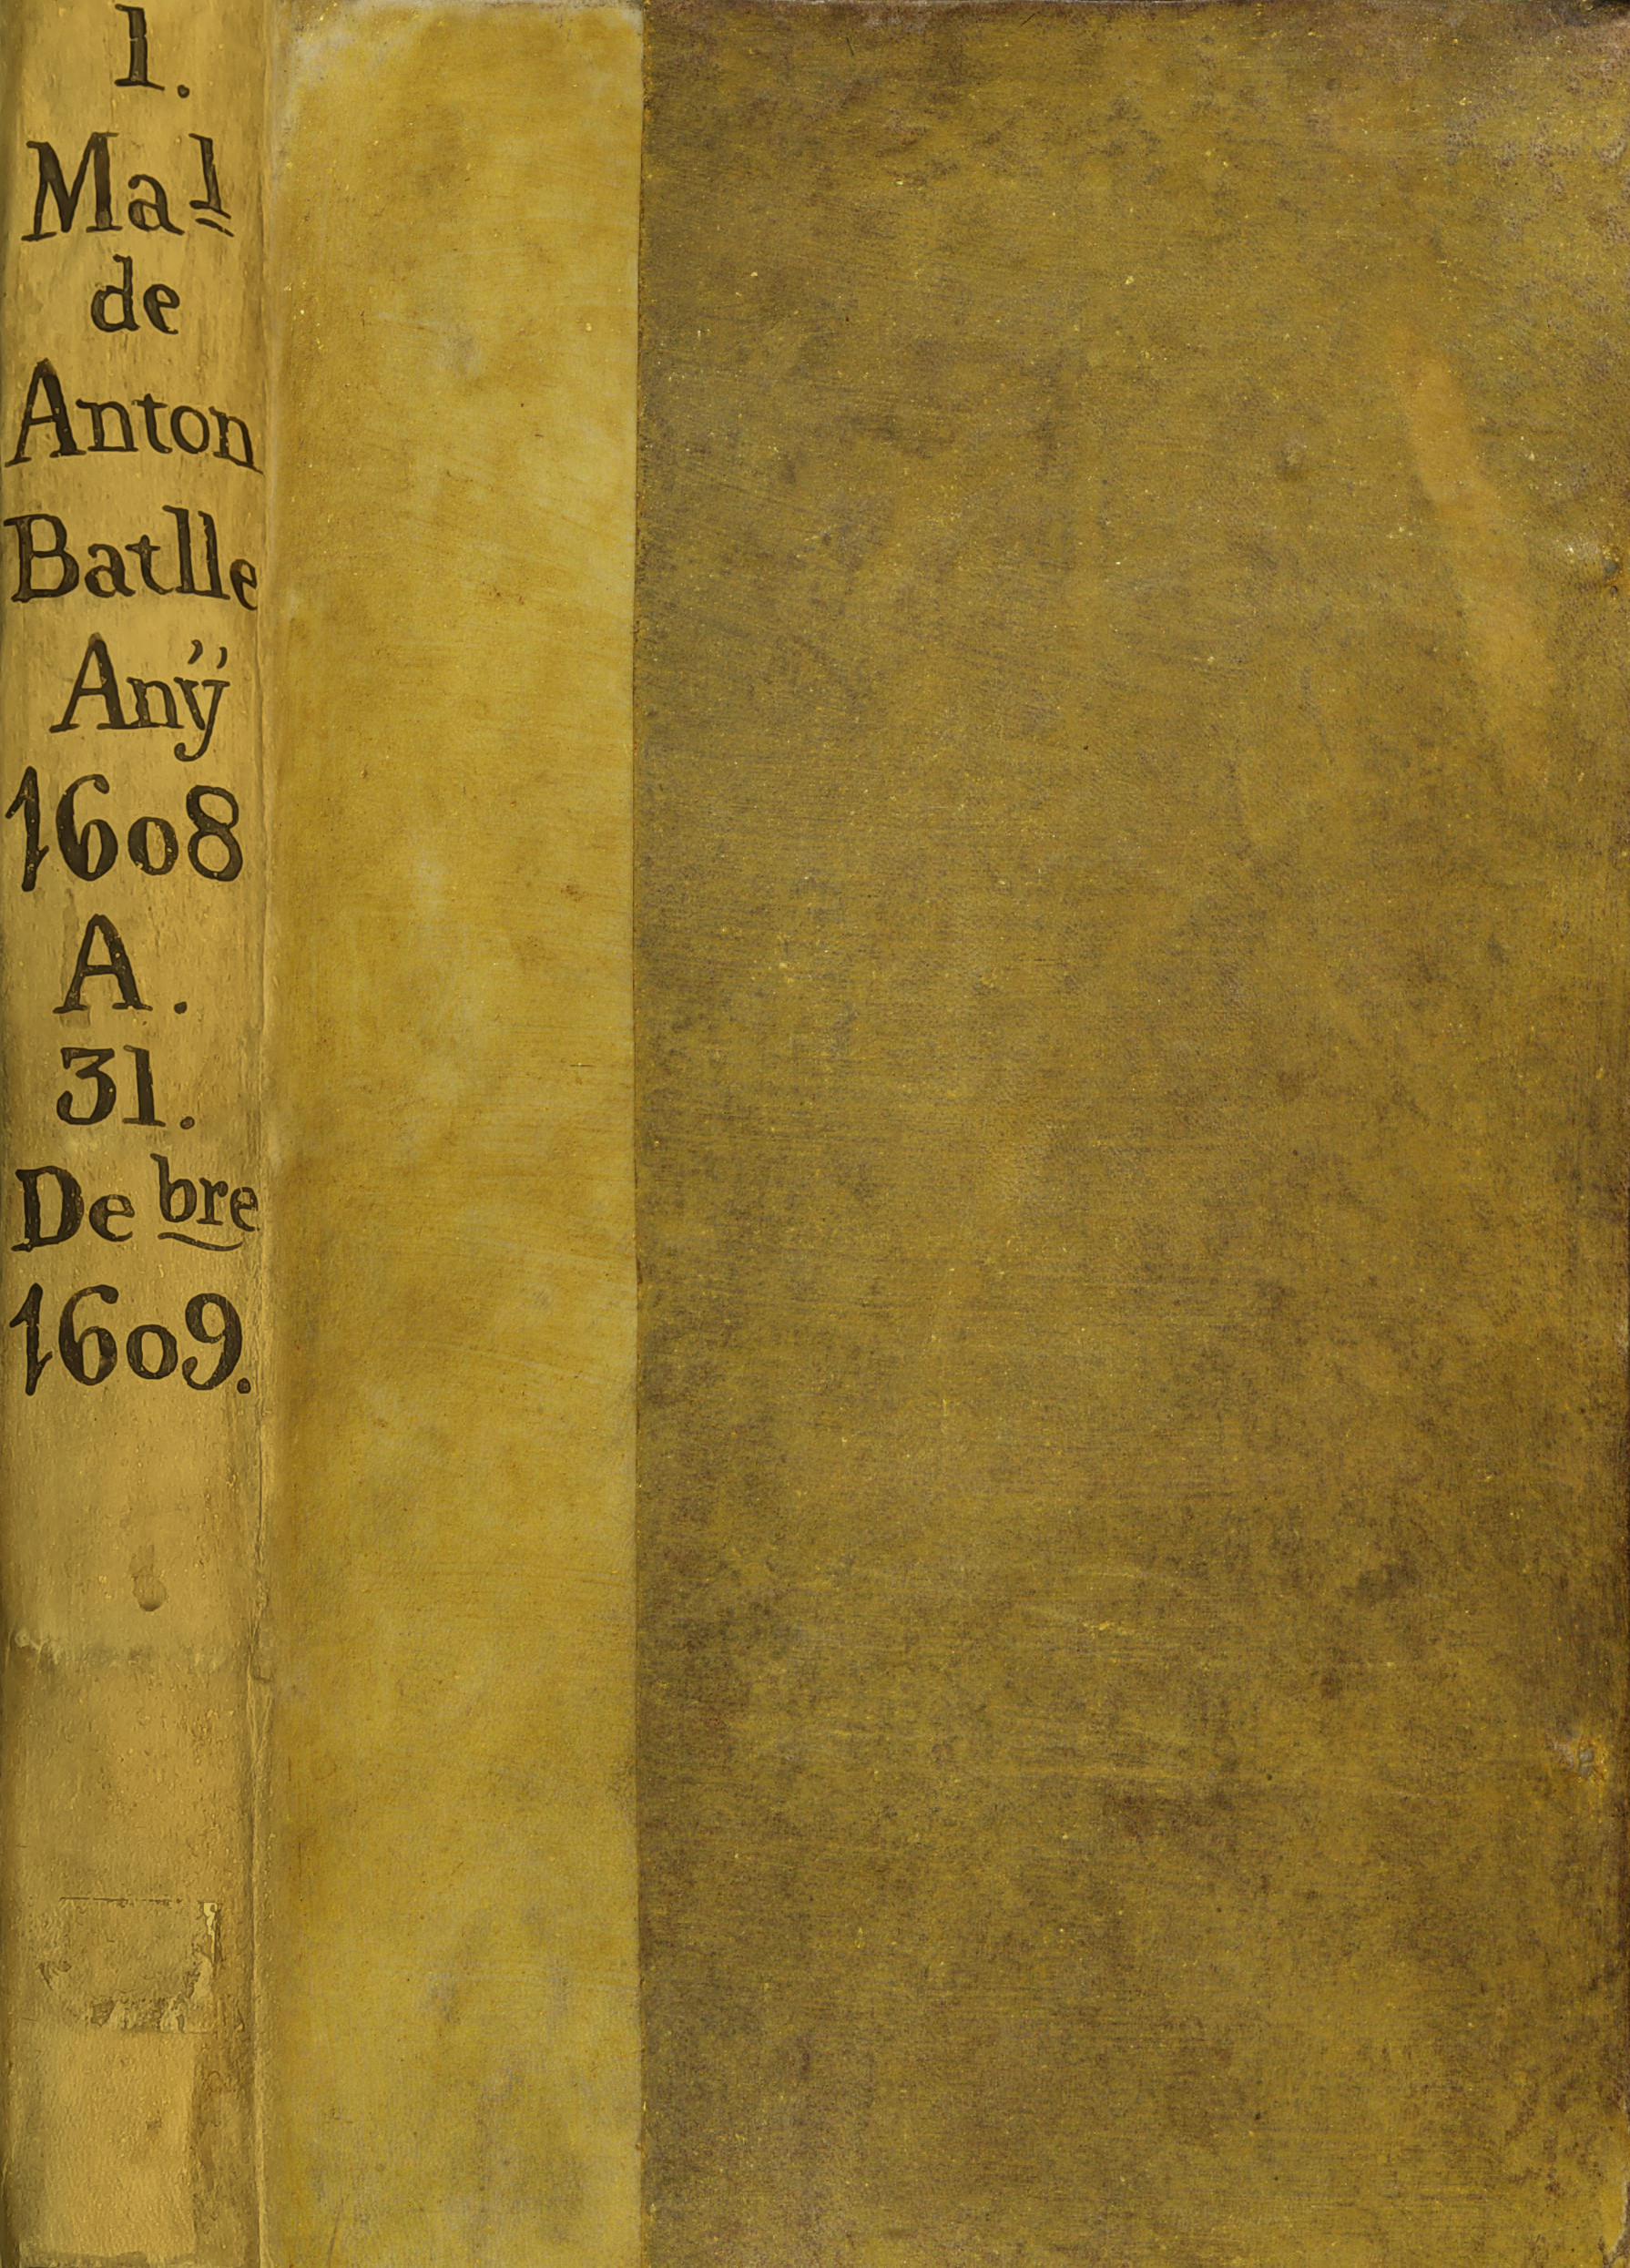 1.
Mal
de
Anton
Batlle
Anÿ
1608
A.
31.
Debre
1609.